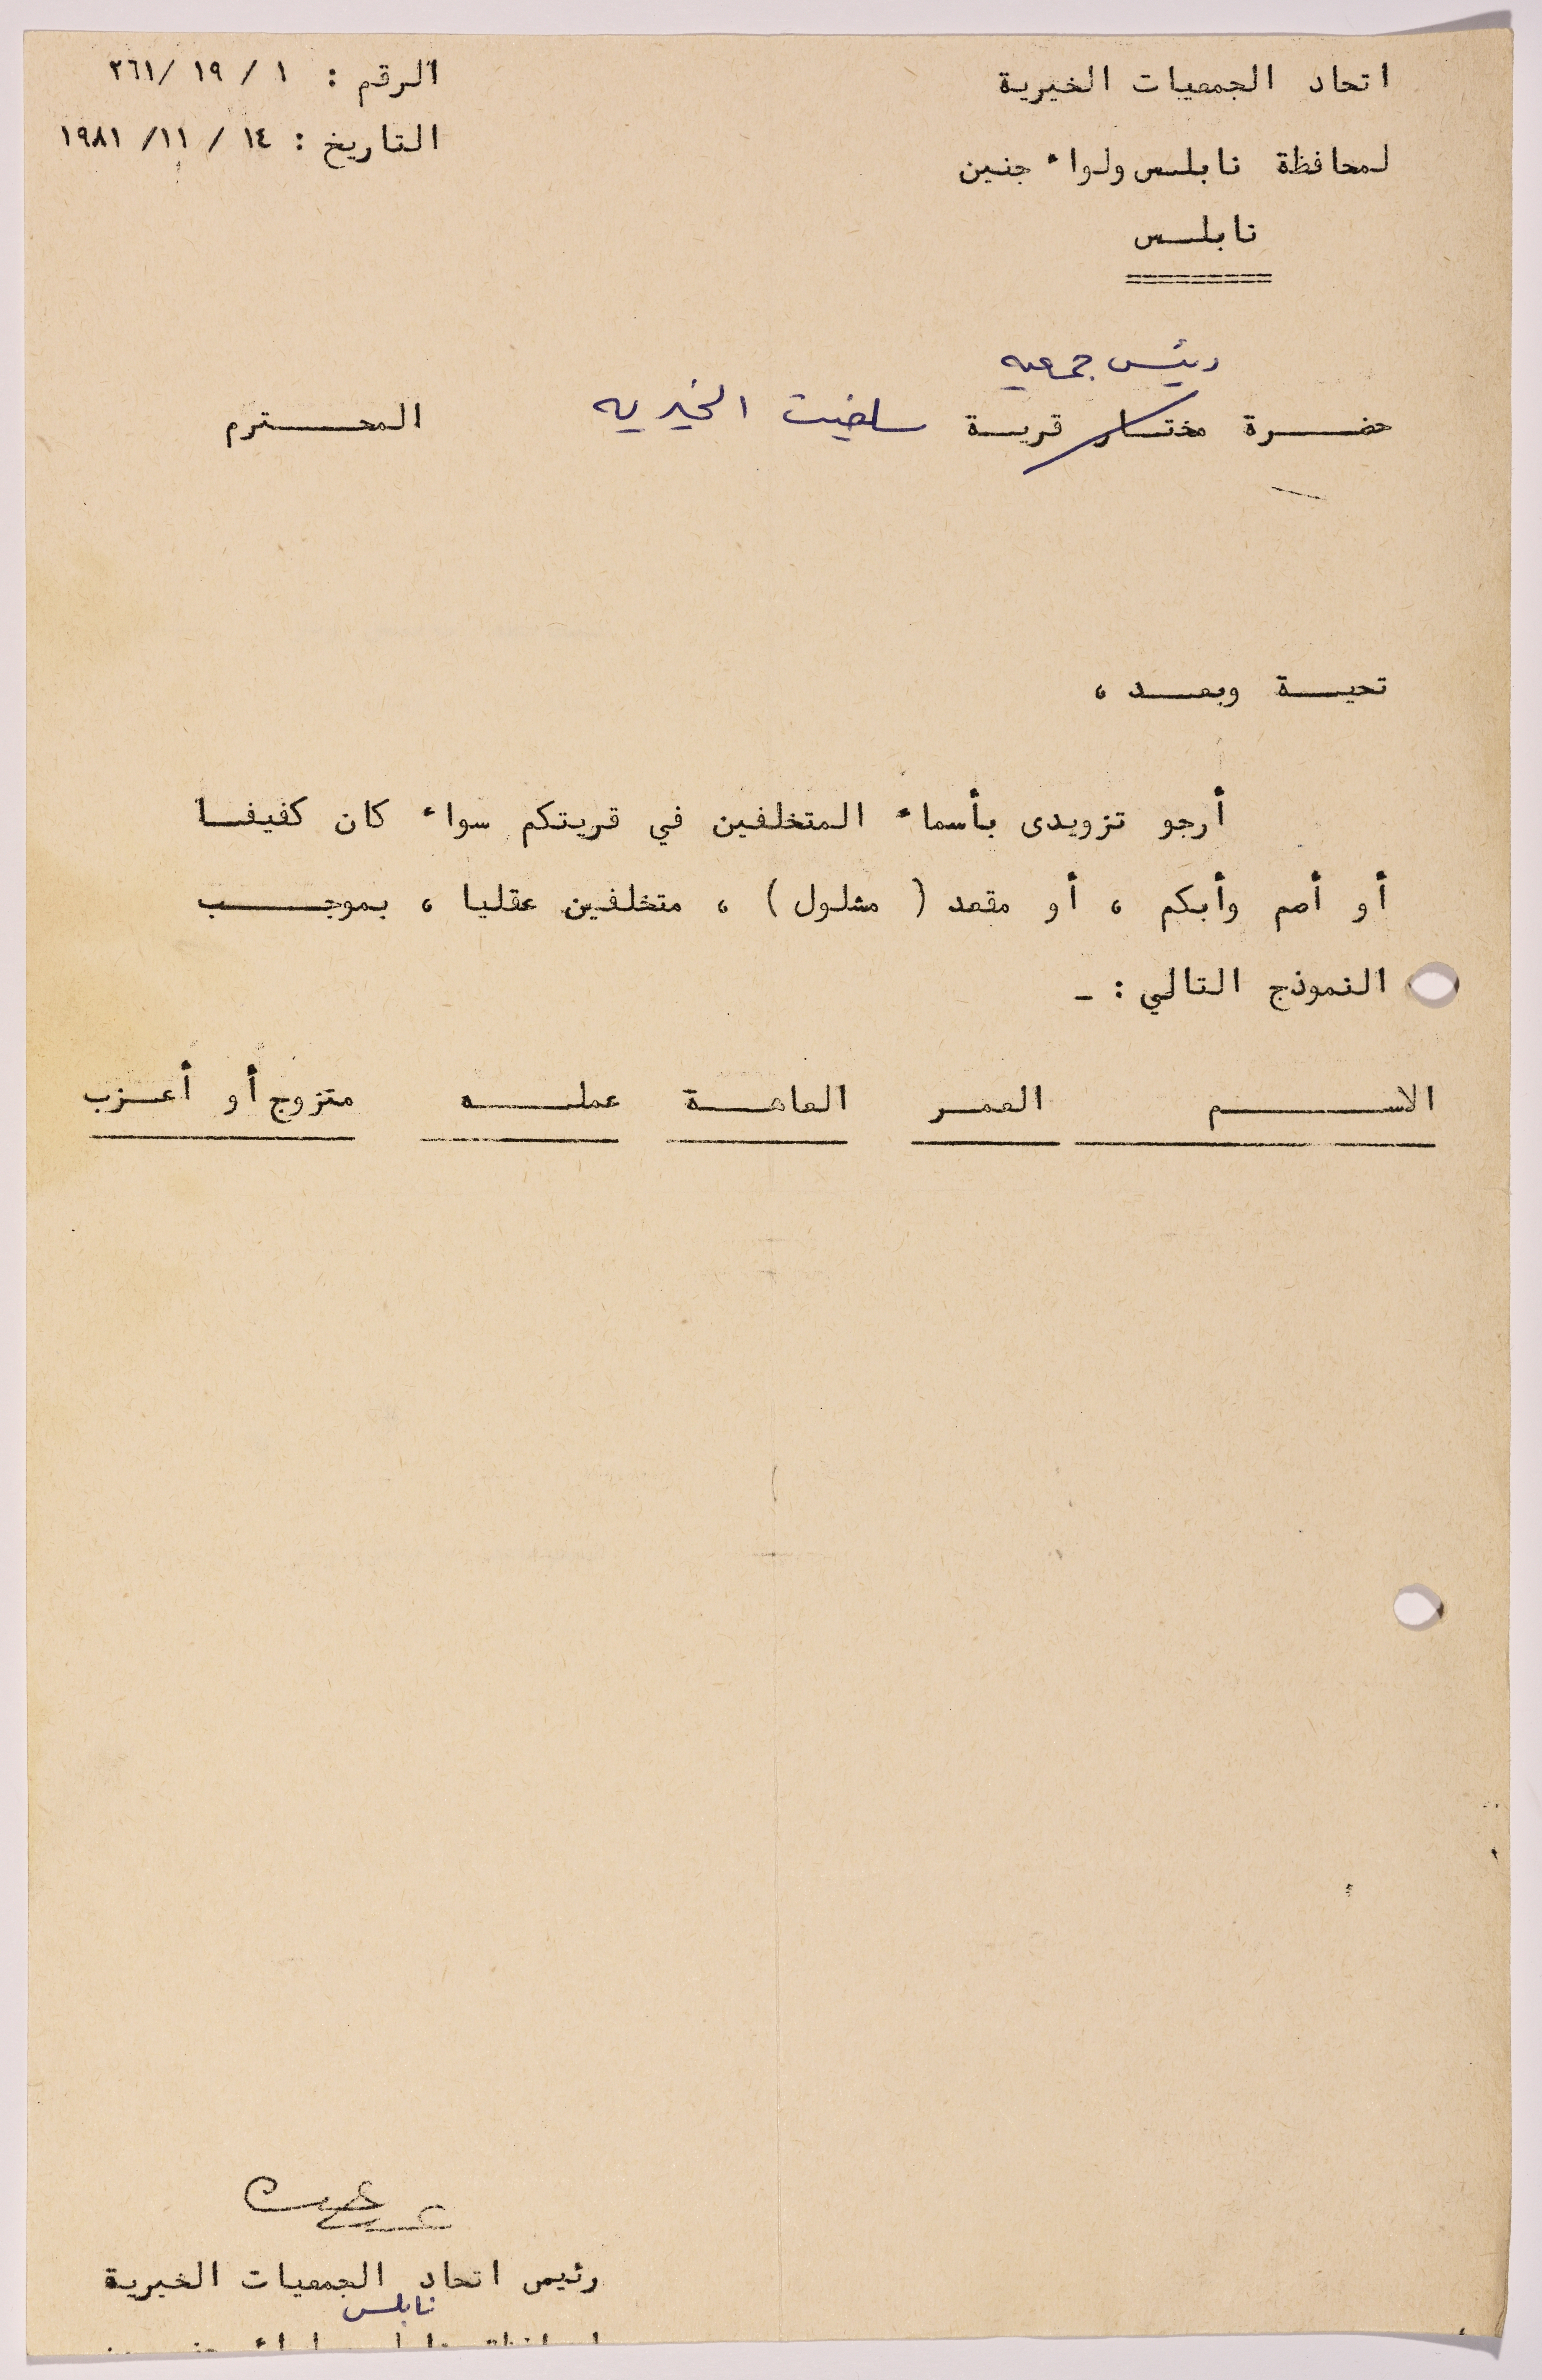 اتحاد الجمعيات الخيرية
لمحافظة نابلس ولواء جنين
نابلس
الرقم : ١ / ١٩ /٢٦١
التاريخ : ١٤ / ١١/ ١٩٨١
رئيس جمعيه
حضرة مختار قرية سلفيت الخيريه المحترم
تحية وبعد ،
أرجو تزويدى بأسماء المتخلفين في قريتكم سواء كان كفيفا
أو أصم وأبكم ، أو مقعد ( مشلول ) ، متخلفين عقليا ، بموجب
النموذج التالي : ـ
الاسم العمر العاهة عمله متزوج أو أعزب
رئيس اتحاد الجمعيات الخيرية
نابلس